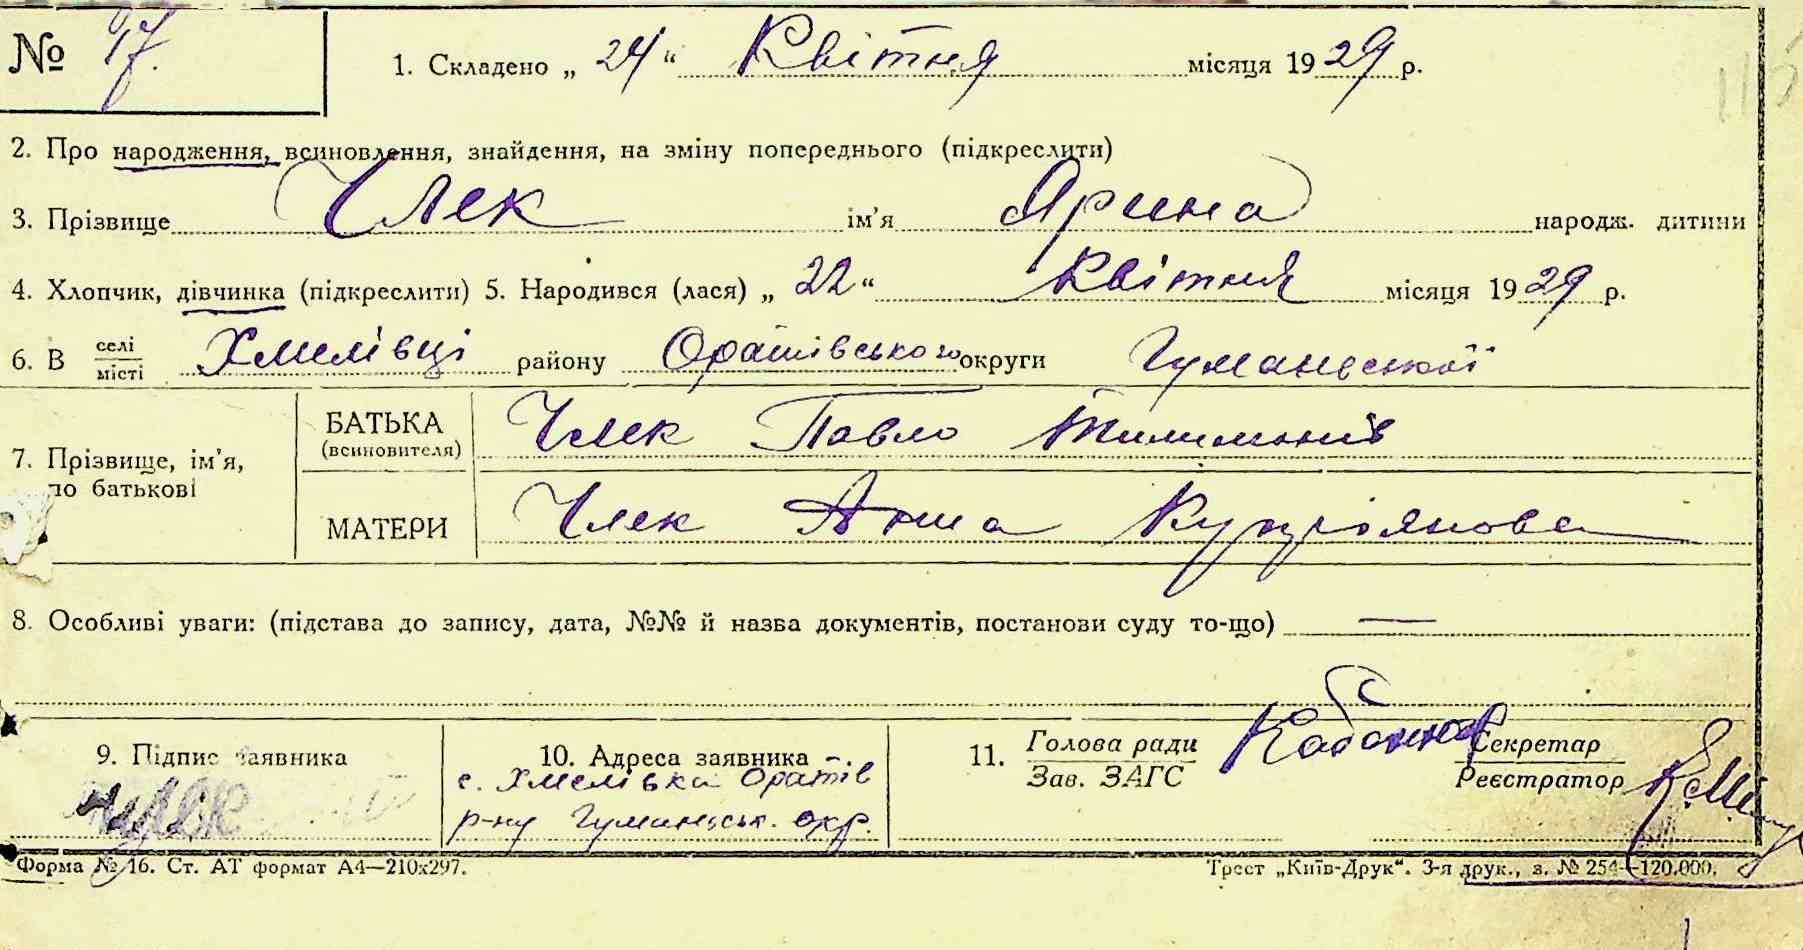 № 17.
1. Складено „ 24 “ Квітня місяця 1929 р.
2. Про народження, всиновлення, знайдення, на зміну попереднього (підкреслити)
3. Прізвище Член ім’я Ярина народж. дитини
4. Хлопчик, дівчинка (підкреслити) 5. Народився (лася) „ 22 “ Квітня місяця 1929 р.
6. В селі місті Хмелівці району Оратівського округи Гуманської
7. Прізвище, ім’я, по батькові
БАТЬКА (всиновителя) Члек Павло Тилимонів
МАТЕРИ Члек Анна Купріянова
8. Особливі уваги: (підстава до запису, дата, №№ й назва документів, постанови суду то-що) —
9. Підпис заявника Члек
10. Адреса заявника с. Хмелівка Оратів р-ну Гуманськ. окр.
11. Голова ради Зав. ЗАГС
Секретар Реєстратор
Форма № 16. Ст. АТ формат А4—210х297.
Трест „Київ-Друк“. 3-я друк., з. № 254—120.000.